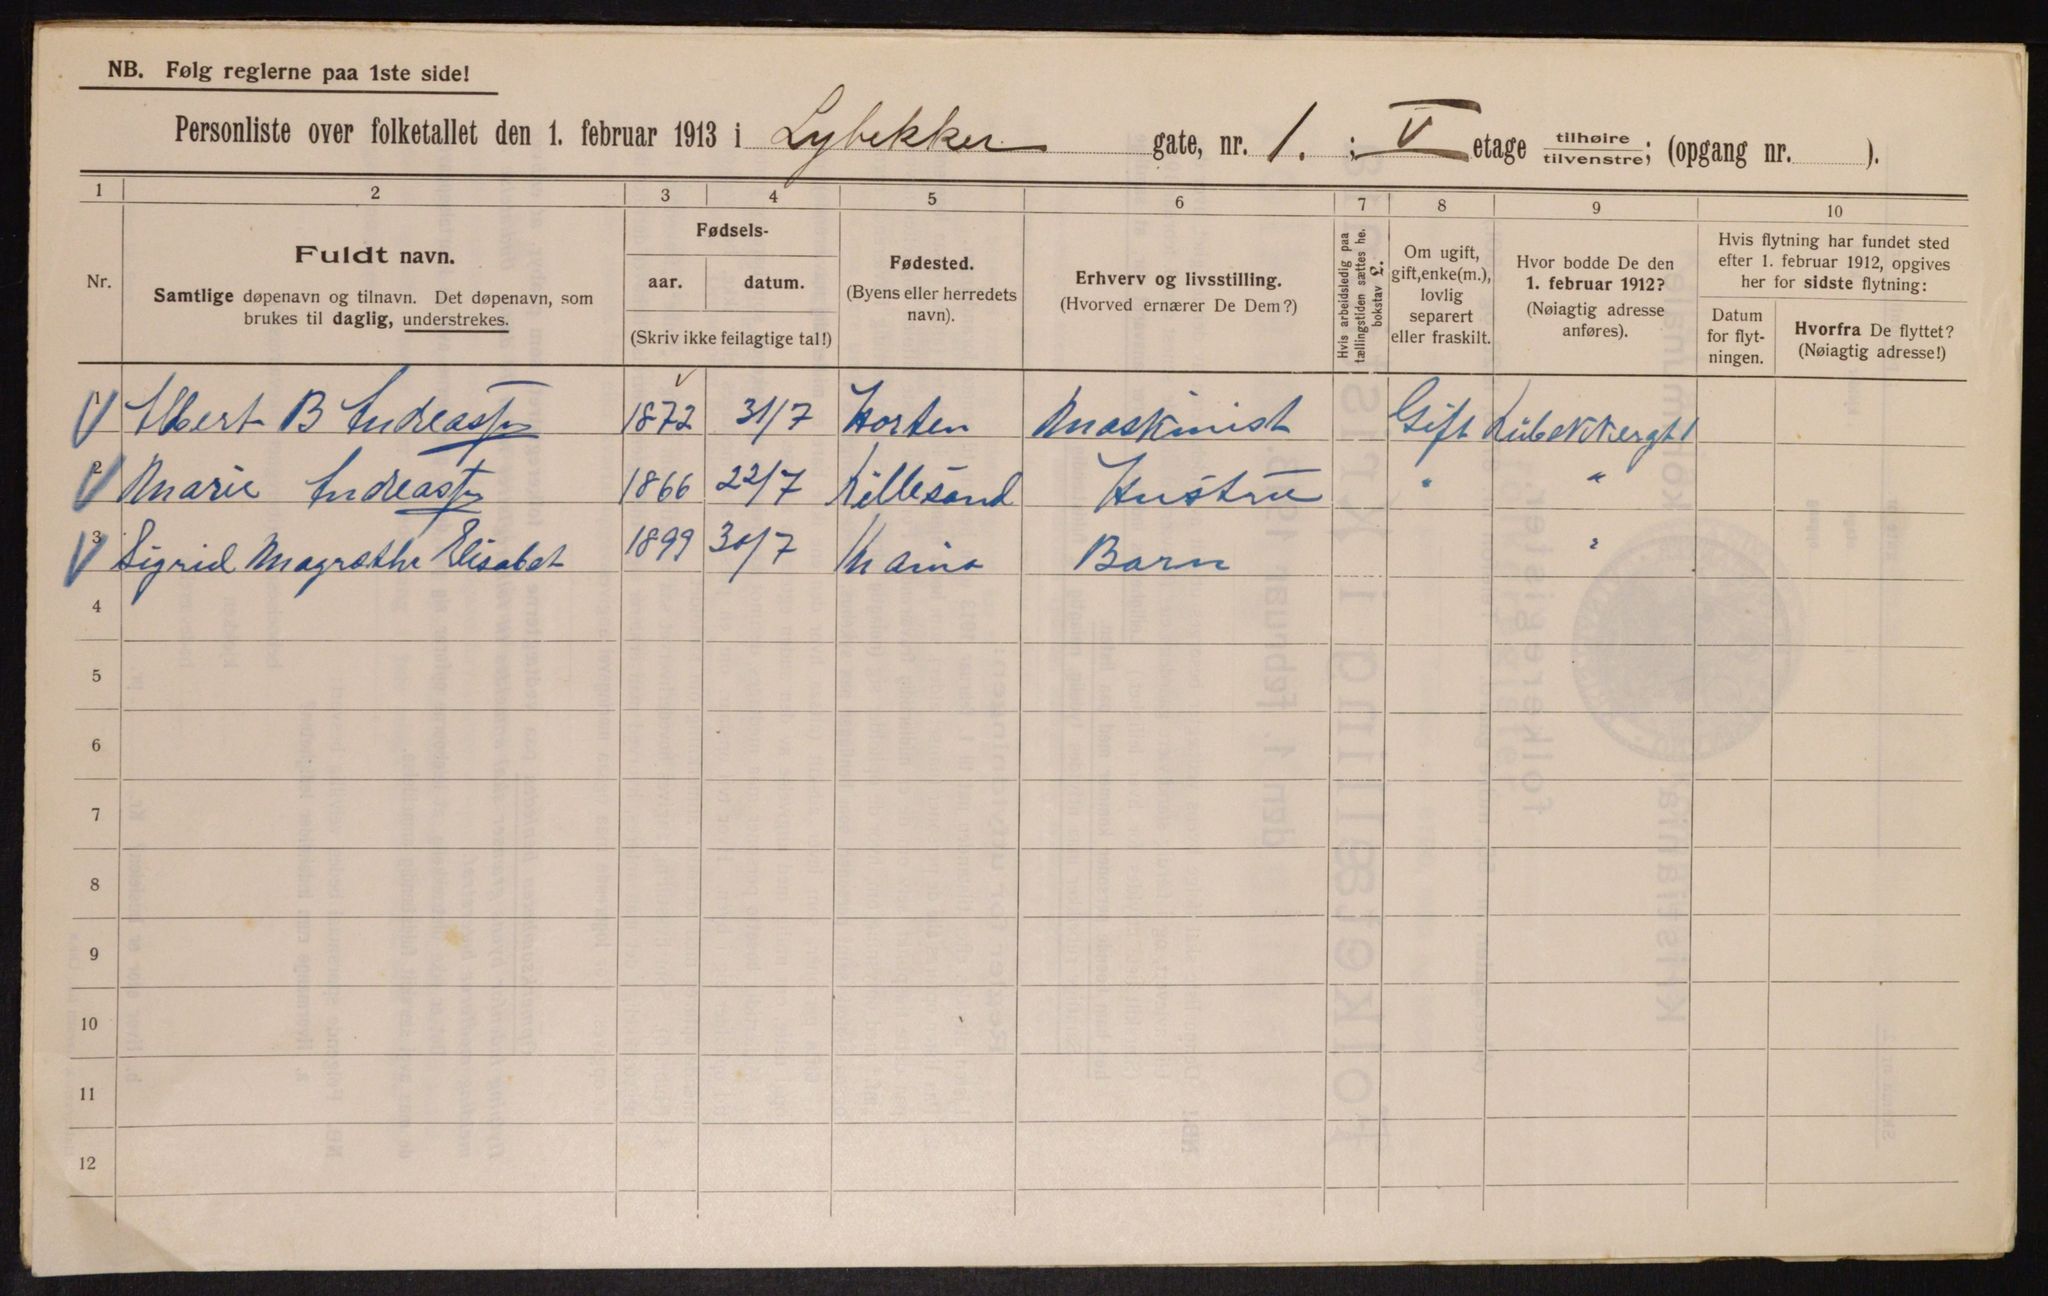 NB. Følg reglerne paa 1ste side!
Personliste over folketallet den 1. februar 1913 i Lybekker gate, nr. 1. ; V etage tilhøire tilvenstre; (opgang nr. ).
1 2 3 4 5 6 7 8 9 10
Nr.
Fuldt navn.
Samtlige døpenavn og tilnavn. Det døpenavn, som
brukes til daglig, understrekes.
Fødsels-
aar. datum.
(Skriv ikke feilagtige tal!)
Fødested.
(Byens eller herredets
navn).
Erhverv og livsstilling.
(Hvorved ernærer De Dem?)
Hvis arbeidsledig paa
tællingstiden sættes he.
bokstav L.
Om ugift,
gift, enke(m.),
lovlig
separert
eller fraskilt.
Hvor bodde De den
1. februar 1912?
(Nøiagtig adresse
anføres).
Hvis flytning har fundet sted
efter 1. februar 1912, opgives
her for sidste flytning:
Datum
for flyt-
ningen.
Hvorfra De flyttet?
(Nøiagtig adresse!)
1 Albert B Andreassen 1872 31/7 Horten Maskinist Gift Lübekkergt 1
2 Marie Andreassen 1866 22/7 Lillesand Hustru " "
3 Sigrid Magrethe Elisabet 1899 30/7 Barn "
4
5
6
7
8
9
10
11
12